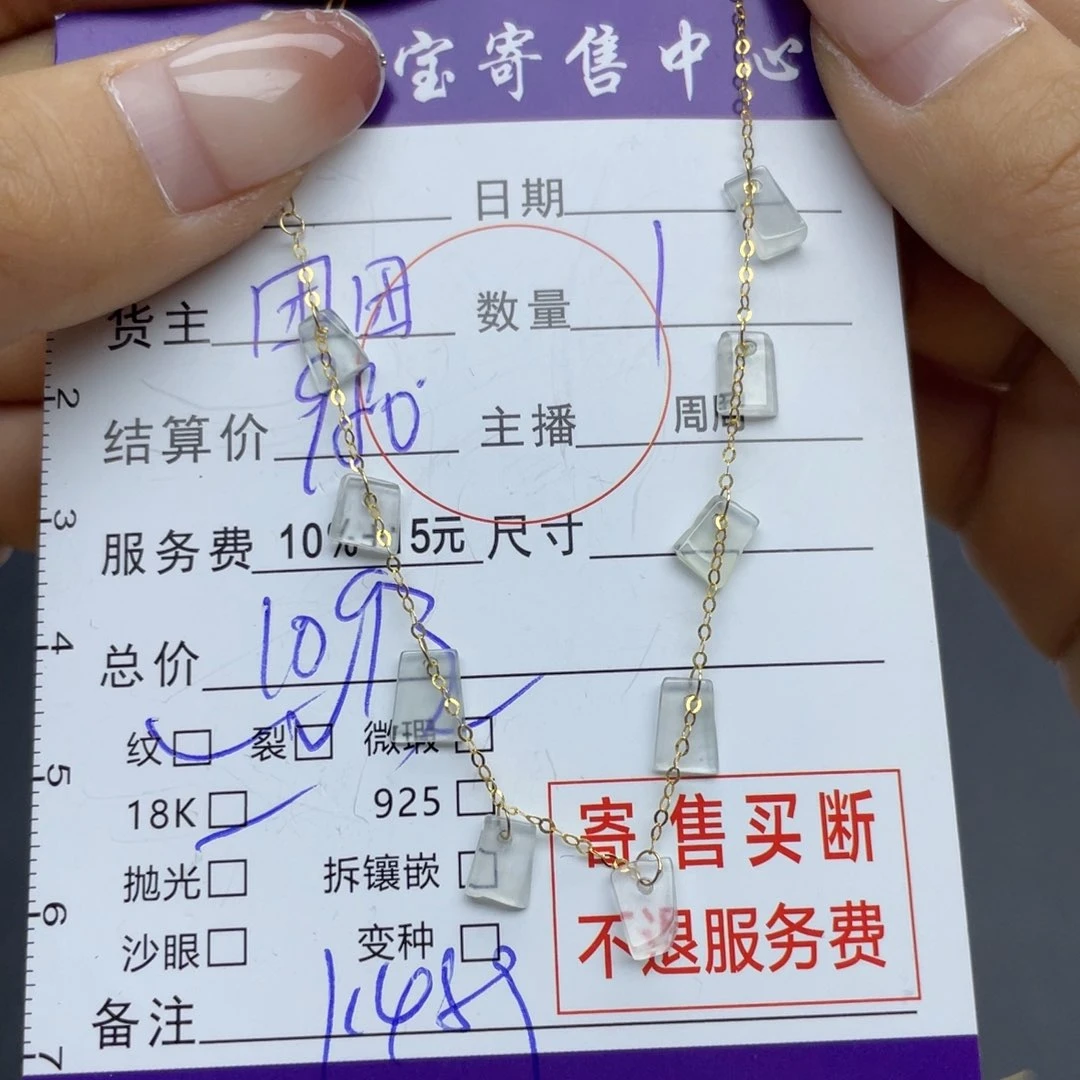 宝寄售中心
日期
货主 团团 数量 1
结算价 980 主播 周周
服务费 10% 15元 尺寸
总价
纹 裂 微瑕
18K 925
抛光 拆镶嵌
沙眼 变种
备注 1.48g
寄售买断
不退服务费
2
3
4
5
6
7